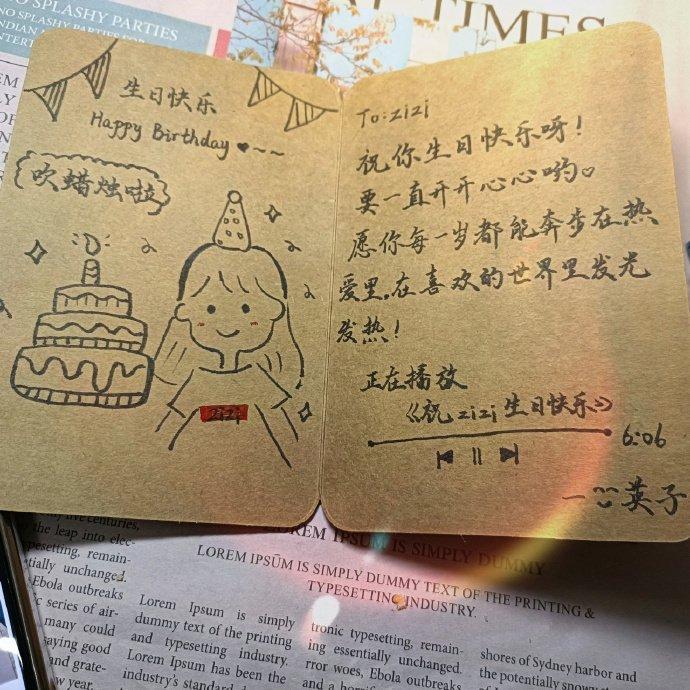 NO SPLASHY PARTIES
TIMES
生日快乐
Happy Birthday
吹蜡烛啦
zizi
To:zizi
祝你生日快乐呀!
要一直开开心心哟。
愿你每一岁都能奔步在热
爱里,在喜欢的世界里发光
发热!
正在播放
《祝zizi生日快乐》
6:06
一英子
LOREM IPSUM IS SIMPLY DUMMY
LOREM IPSŪM IS SIMPLY DUMMY TEXT OF THE PRINTING &
TYPESETTING INDUSTRY.
five centuries,
the leap into elec-
typesetting, remain-
tially unchanged.
Ebola outbreaks
series of air-
many could
saying good
and grate-
w year.
Lorem Ipsum is simply
dummy text of the printing
and typesetting industry.
Lorem Ipsum has been the
industry's standard
tronic typesetting, remain-
ing essentially unchanged.
rror woes, Ebola outbreaks
shores of Sydney harbor and
the potentially